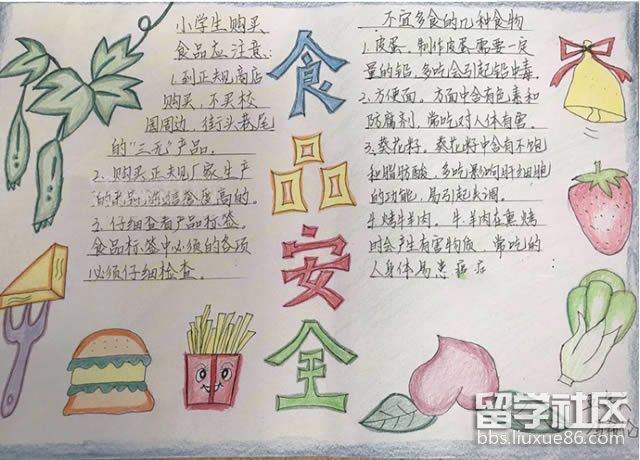 小学生购买
食品应注意:
1.到正规商店
购买,不买校
园周边、街头巷尾
的“三无”产品。
2.购买正规厂家生产
的 度高的。
3.仔细查看产品标签。
食品标签中必须的各项
必须仔细检查。
食品安全
不宜多食的几种食物
1.皮蛋。制作皮蛋需要一定
量的铅,多吃会引起铅中毒
2.方便面。方面中含有色素和
防腐剂,常吃对人体有害。
3.葵花籽。葵花籽中含有不饱
和脂肪酸,多吃影响肝细胞
的功能,易引起失调。
4.烤牛羊肉。牛羊肉在熏烤
时会产生有害物质,常吃的
人身体易患癌症
留学社区
bbs.liuxue86.com